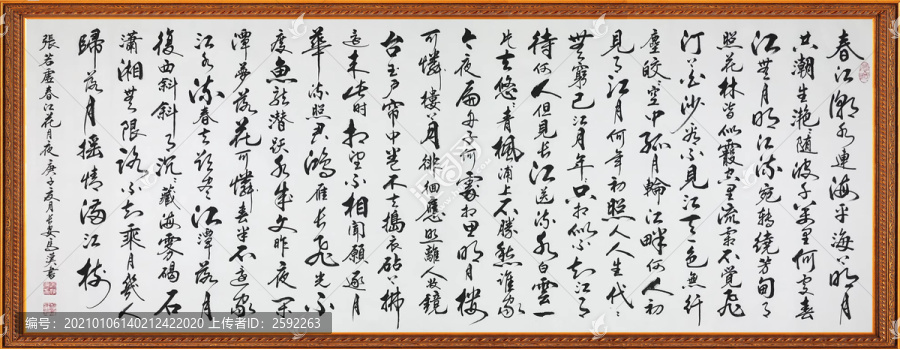 春江潮水連海平海上明月
共潮生灧〻隨波千萬里何處春
江無月明江流宛轉繞芳甸月
照花林皆似霰空里流霜不覺飛
汀上白沙看不見江天一色無纖
塵皎〻空中孤月輪江畔何人初
見月江月何年初照人人生代〻
無窮已江月年〻只相似不知江月
待何人但見長江送流水白雲一
片去悠〻青楓浦上不勝愁誰家
今夜扁舟子何處相思明月樓
可憐樓上月徘徊應照離人妝鏡
台玉戶帘中卷不去搗衣砧上拂
還來此時相望不相聞願逐月
華流照君鴻雁長飛光不
度魚龍潛躍水成文昨夜閑
潭夢落花可憐春半不還家
江水流春去欲盡江潭落月
復西斜斜月沉〻藏海霧碣石
瀟湘無限路不知乘月幾人
歸落月搖情滿江樹
張若虛春江花月夜庚子夏月長安
编号：20210106140212422020 上传者ID：2592263